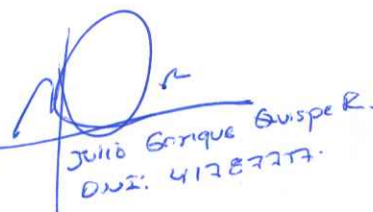 Julio Enrique Quispe R.
DNI: 41787717.